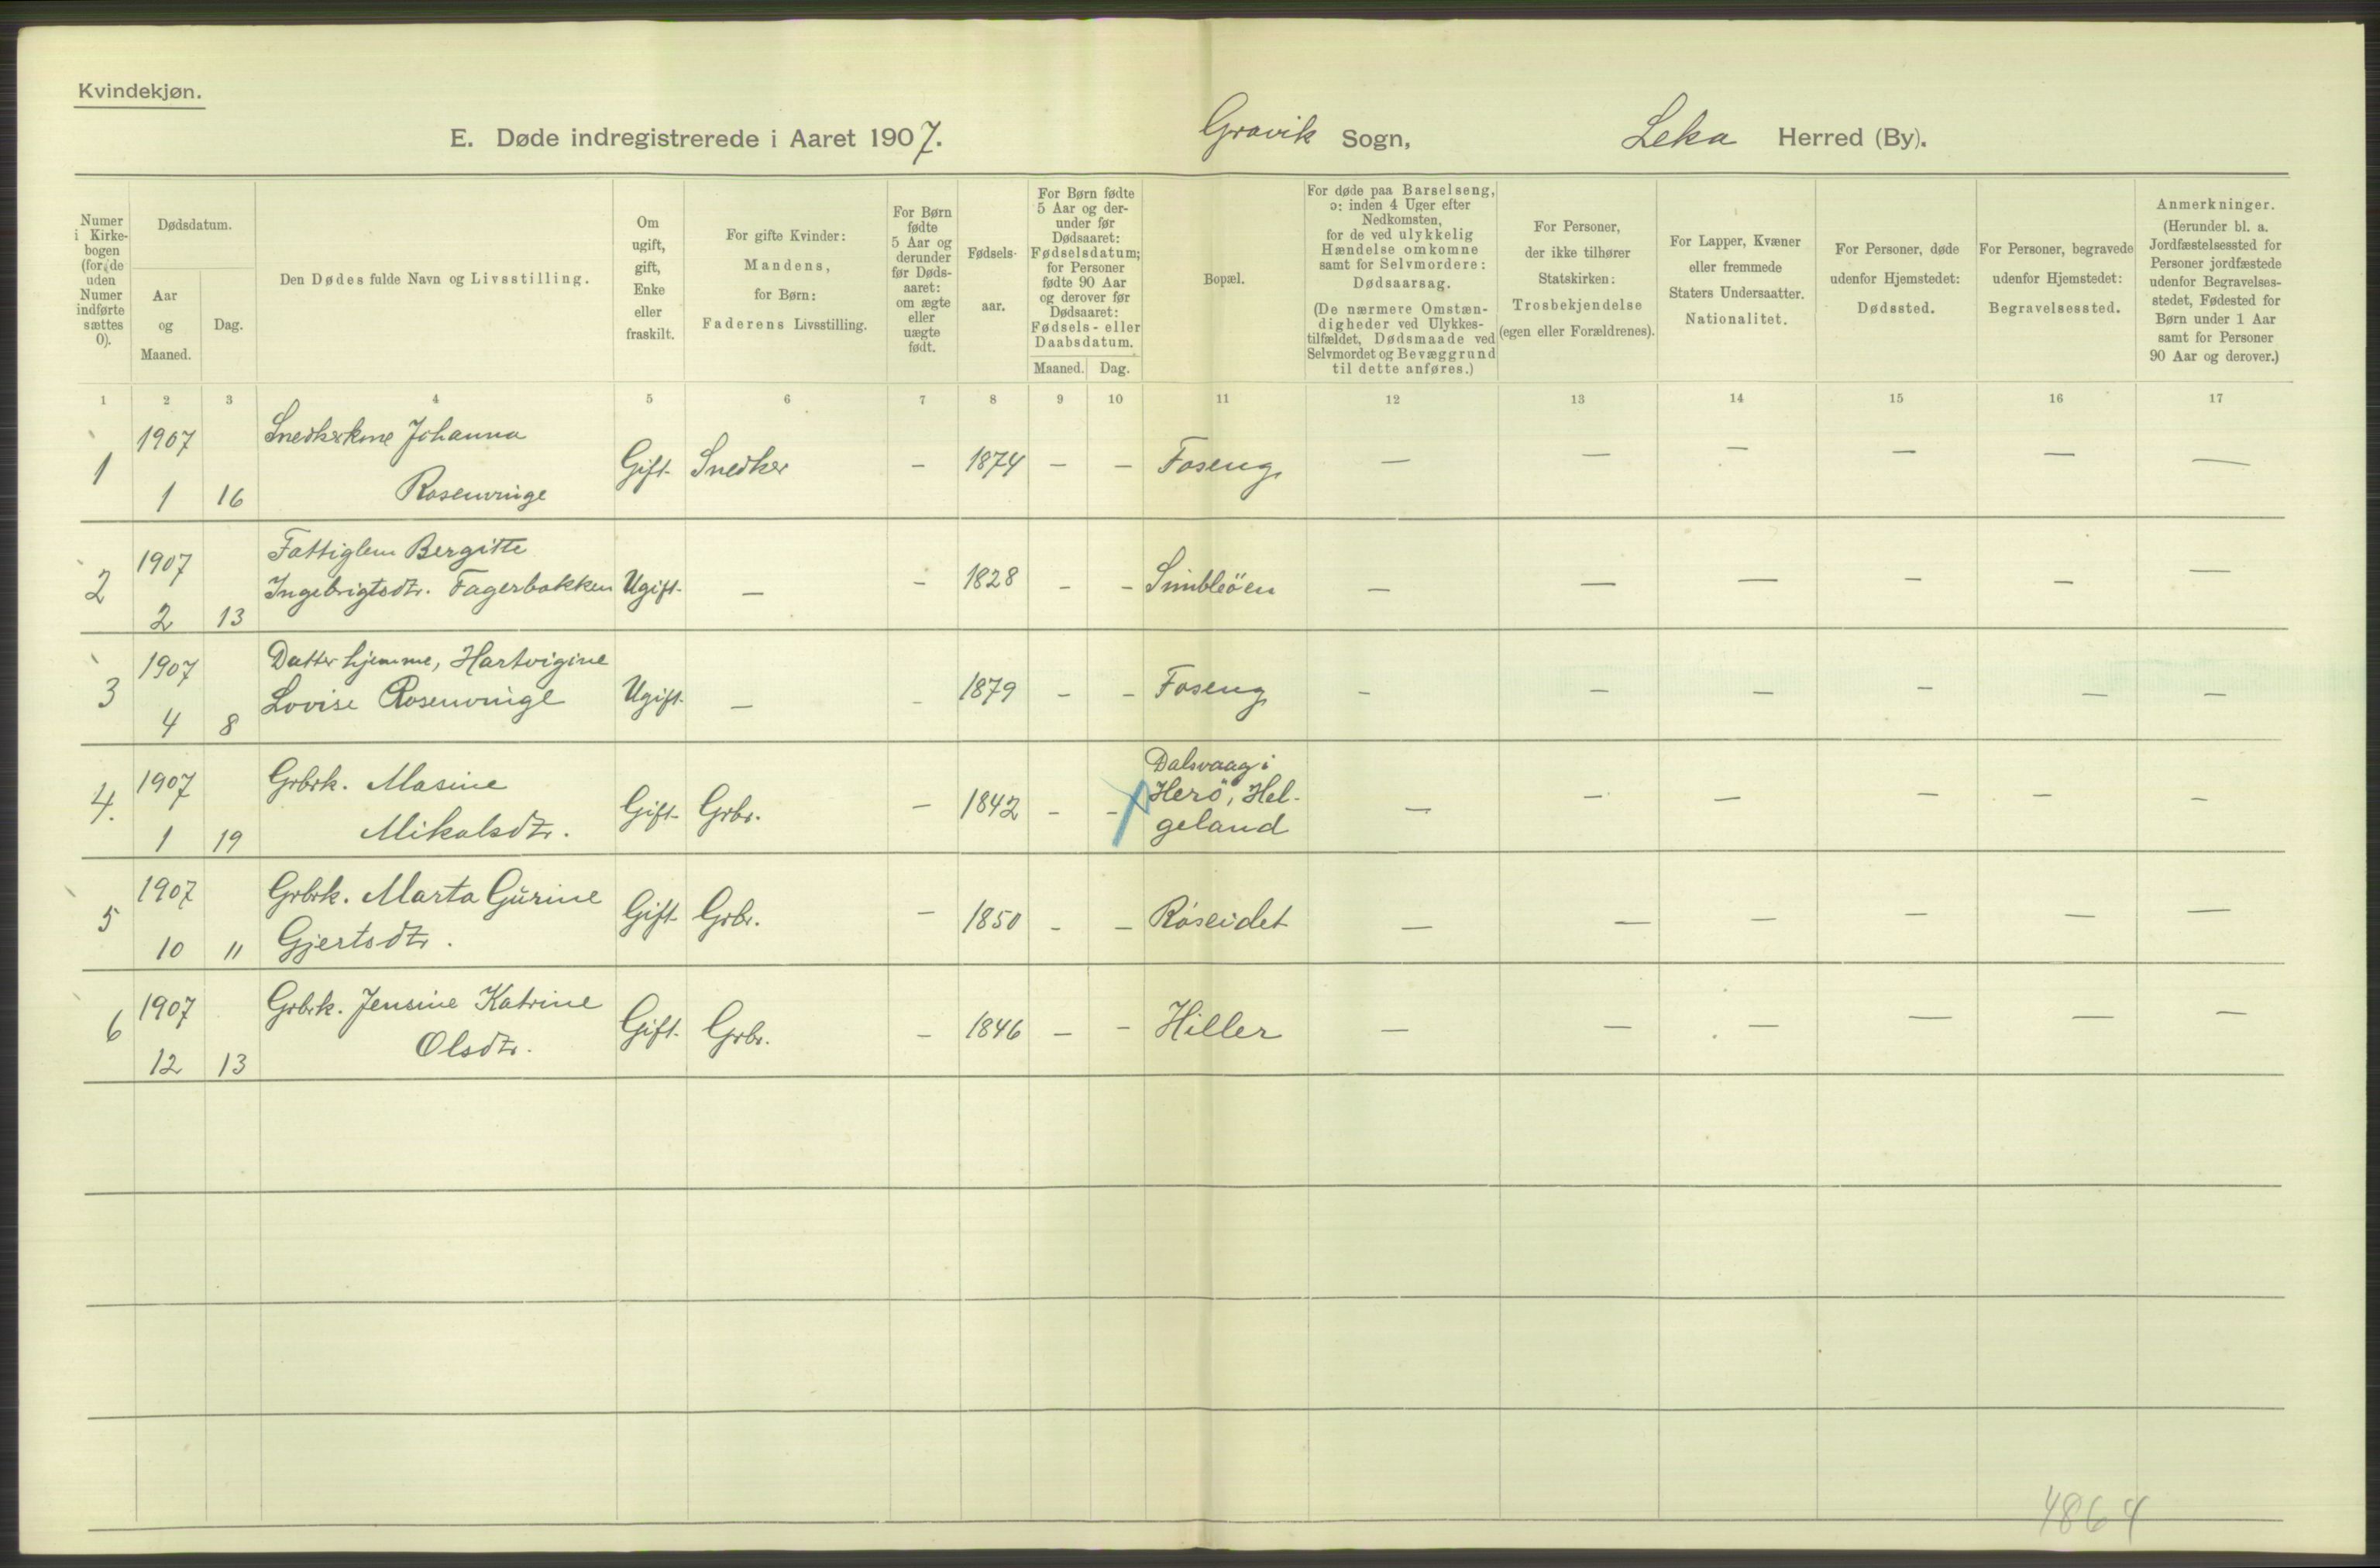 Kvindekjøn.
E. Døde indregistrerede i Aaret 1907. Gravik Sogn, Leka Herred (By).
Numer i Kirkebogen (for de uden Numer indførte sættes 0).
Dødsdatum.
Aar og Maaned.
Dag.
Den Dødes fulde Navn og Livsstilling.
Om ugift, gift, Enke eller fraskilt.
For gifte Kvinder: Mandens, for Børn: Faderens Livsstilling.
For Børn fødte 5 Aar og derunder før Dødsaaret: om ægte eller uægte født.
Fødselsaar.
For Børn fødte 5 Aar og derunder før Dødsaaret: Fødselsdatum; for Personer fødte 90 Aar og derover før Dødsaaret: Fødsels- eller Daabsdatum.
Maaned. Dag.
Bopæl.
For døde paa Barselseng, ɔ: inden 4 Uger efter Nedkomsten, for de ved ulykkelig Hændelse omkomne samt for Selvmordere: Dødsaarsag.
(De nærmere Omstændigheder ved Ulykkestilfældet, Dødsmaade ved Selvmordet og Bevæggrund til dette anføres.)
For Personer, der ikke tilhører Statskirken: Trosbekjendelse (egen eller Forældrenes).
For Lapper, Kvæner eller fremmede Staters Undersaatter. Nationalitet.
For Personer, døde udenfor Hjemstedet: Dødssted.
For Personer, begravede udenfor Hjemstedet: Begravelsessted.
Anmerkninger. (Herunder bl. a. Jordfæstelsessted for Personer jordfæstede udenfor Begravelsesstedet, Fødested for Børn under 1 Aar samt for Personer 90 Aar og derover.)
1 2 3 4 5 6 7 8 9 10 11 12 13 14 15 16 17
1 1907 1 16 Snedkerkone Johanna Rosenvinge Gift. Snedker – 1874 – – Foseng – – – – – –
2 1907 2 13 Fattiglem Bergitte Ingebrigtsdtr. Fagerbakken Ugift. – – 1828 – – Simbleöen – – – – – –
3 1907 4 8 Datter hjemme, Hartvigine Lovise Rosenvinge Ugift. – – 1879 – – Foseng – – – – – –
4. 1907 1 19 Grbrk. Masine Mikalsdtr. Gift. Grbr. – 1842 – – Dalsvaag i Herö, Helgeland – – – – – –
5 1907 10 11 Grbrk. Marta Gurine Gjertsdtr. Gift. Grbr. – 1850 – – Röseidet – – – – – –
6 1907 12 13 Grbrk. Jensine Katrine Olsdtr. Gift. Grbr. – 1846 – – Hiller – – – – – –
4864